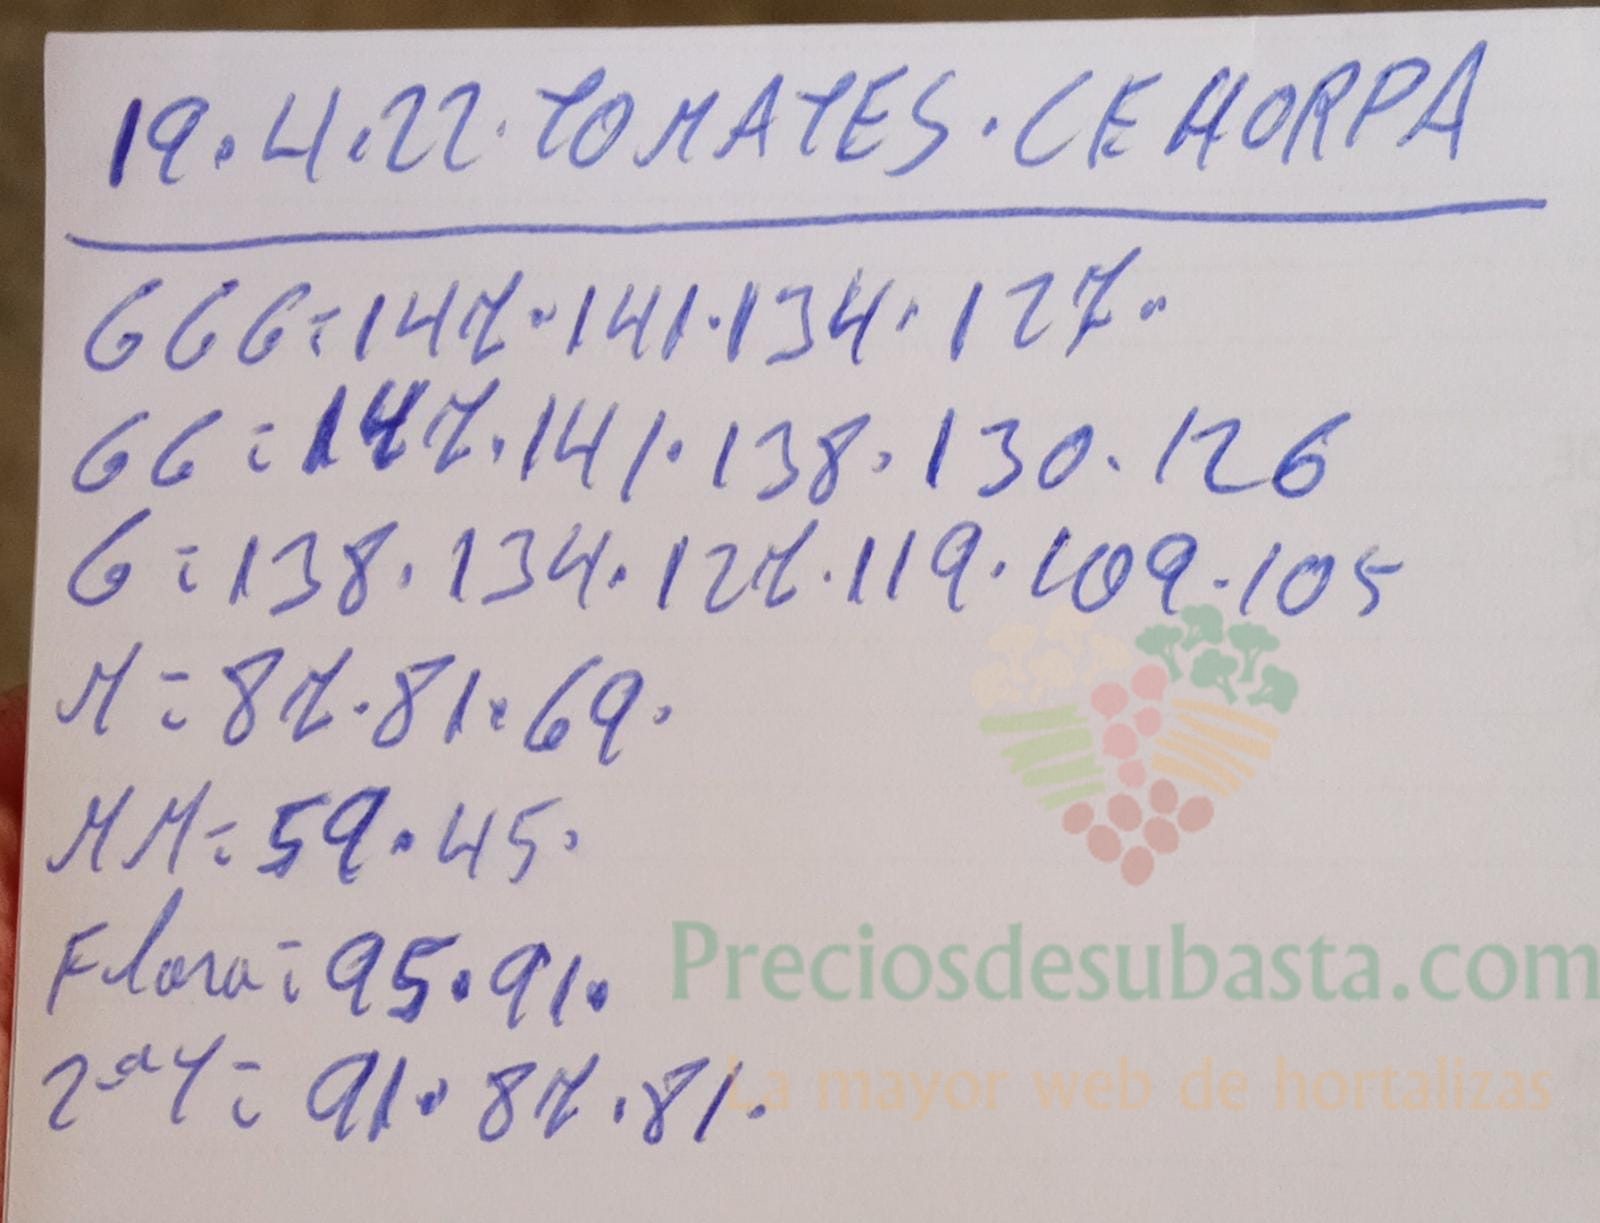 19.4.22.TOMATES.CEHORPA
GGG=147.141.134.127.
GG=147.141.138.130.126
G=138.134.127.119.109.105
M=87.81.69.
MM=59.45.
Flora=95.91.
Preciosdesubasta.com
2ªY=91.87.81.
La mayor web de hortalizas